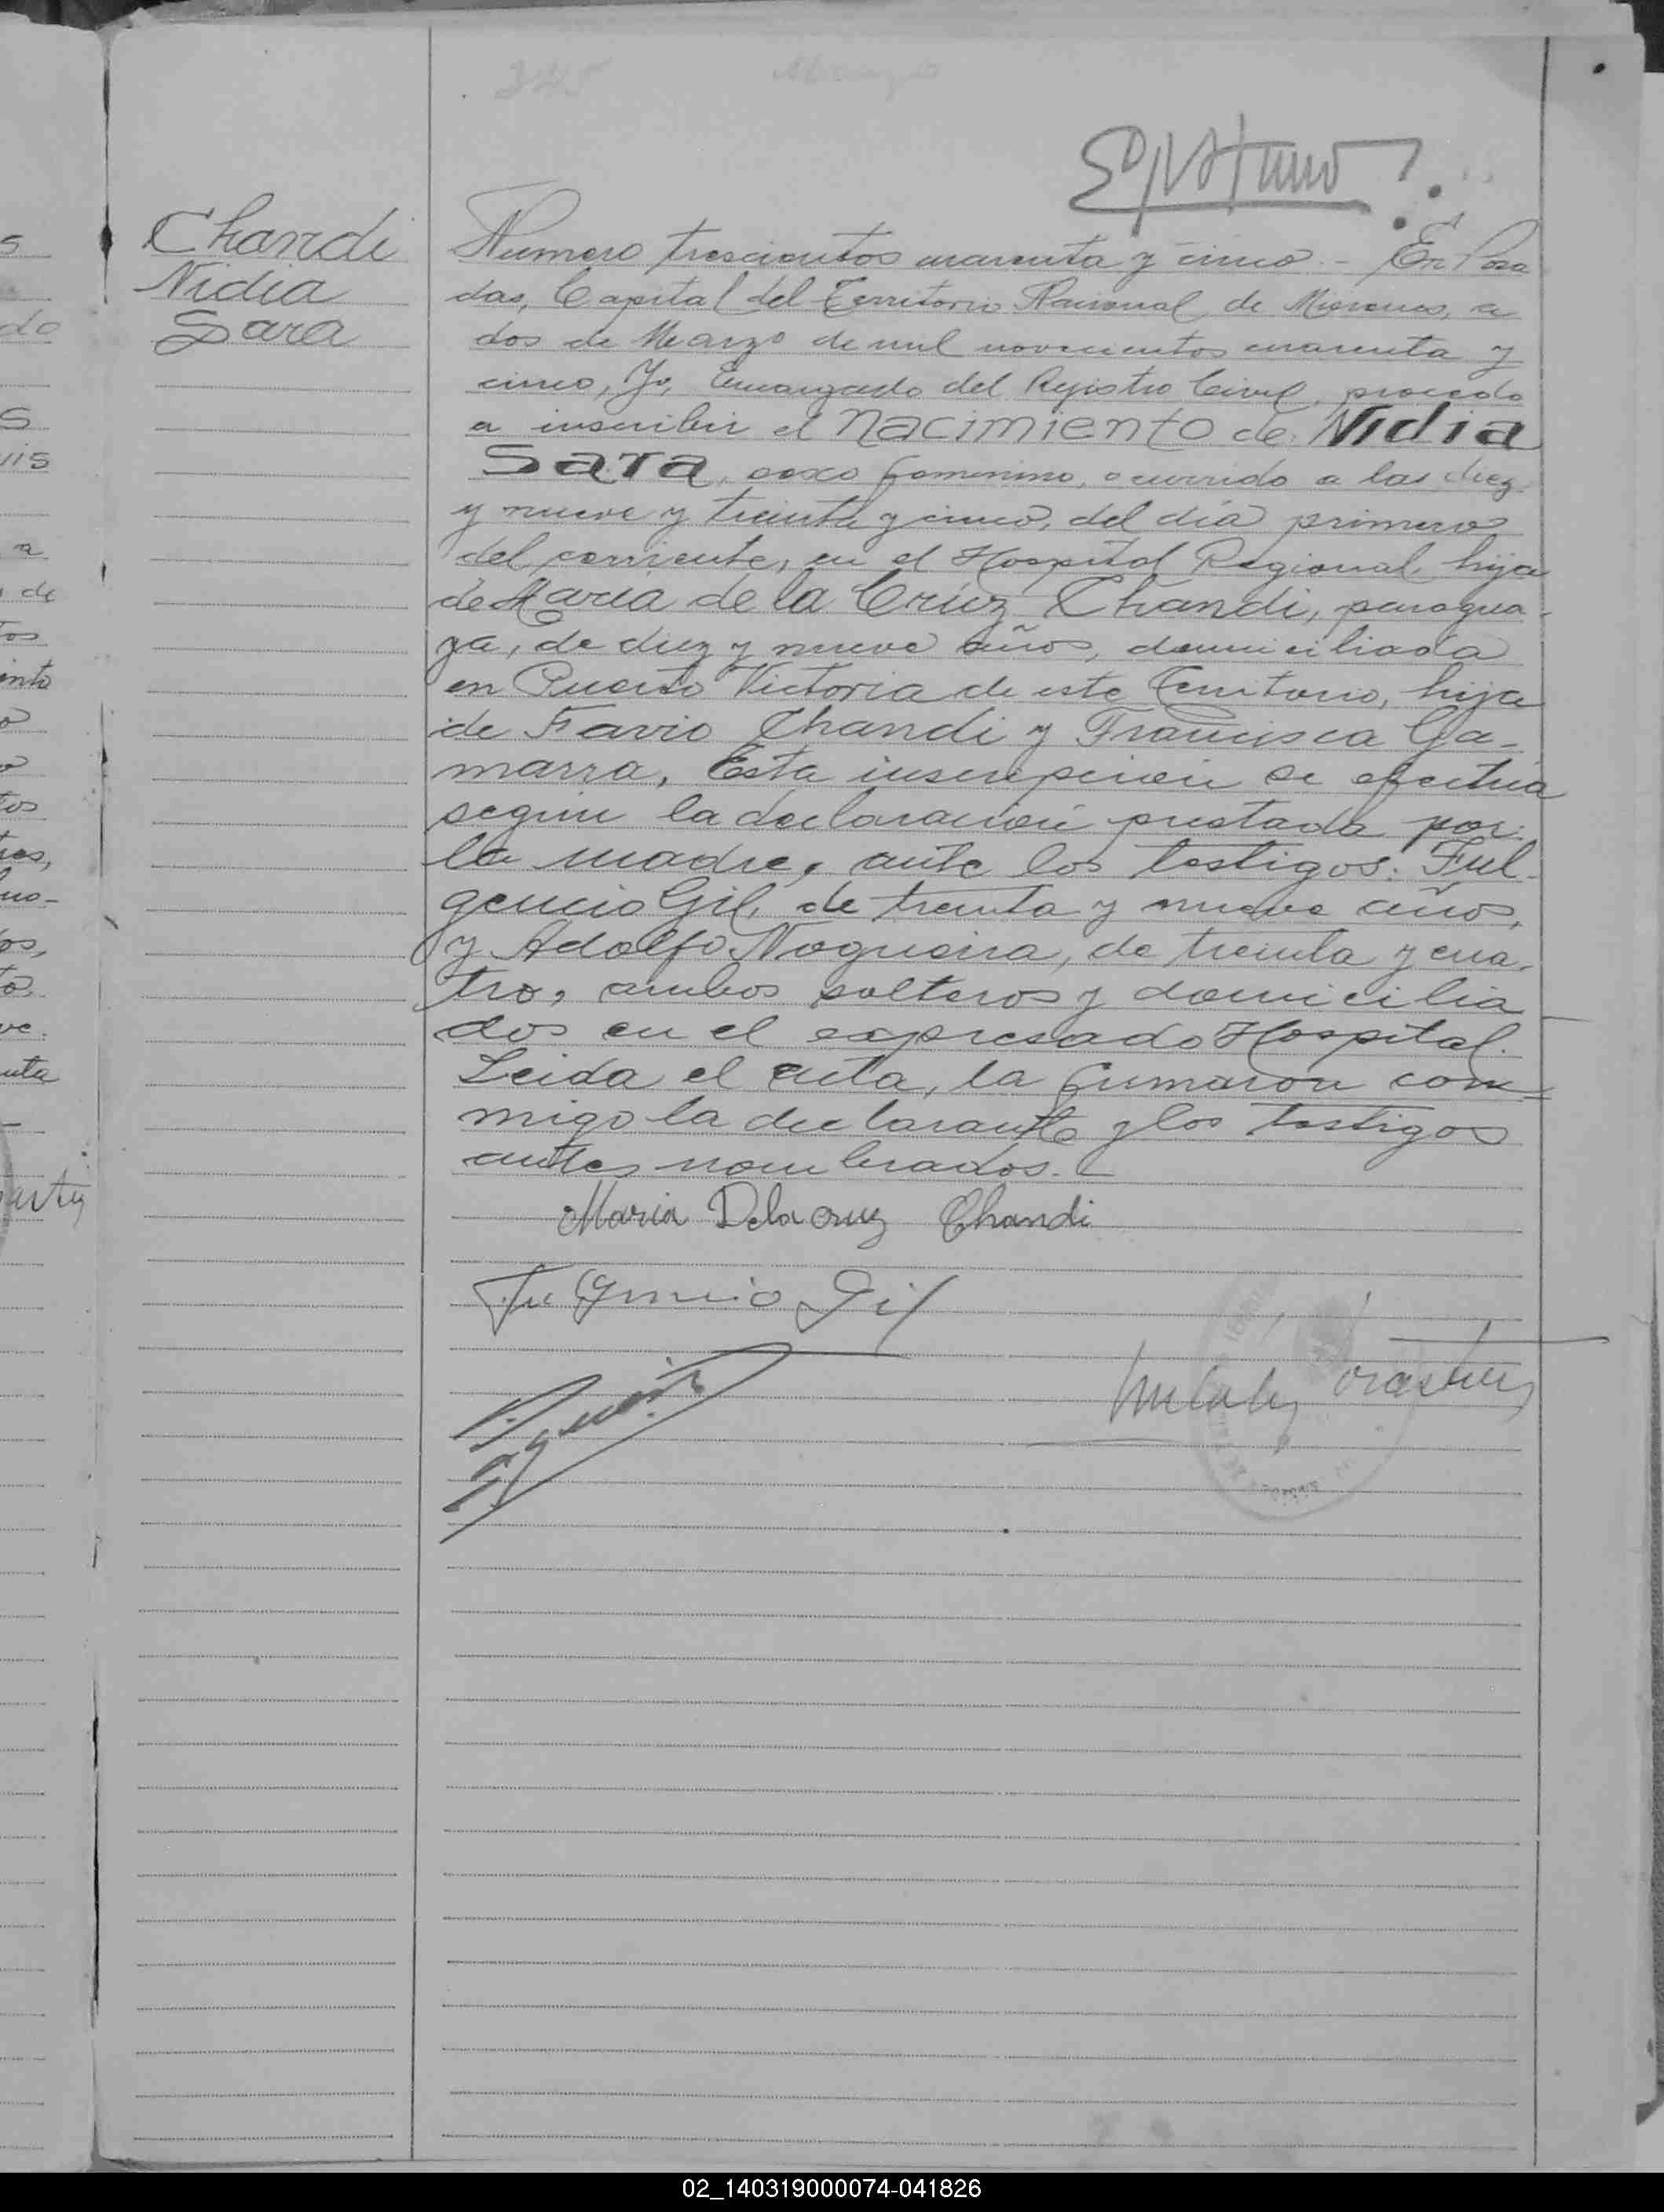 345
Chandi
Nidia
Sara
Numero trescientos cuarenta y cinco.- En Posa
das, Capital del Territorio Nacional de Misiones, a
dos de Marzo de mil novecientos cuarenta y
cinco, Yo, Encargado del Registro Civil, procedo
a inscribir el nacimiento de Nidia
Sara, sexo femenino, ocurrido a las diez
y nueve y treinta y cinco, del día primero
del corriente, en el Hospital Regional, hija
de María de la Cruz Chandi, paragua-
ya, de diez y nueve años, domiciliada
en Puerto Victoria de este Territorio, hija
de Favio Chandi y Francisca Ga-
marra, Esta inscripción se efectúa
según la declaración prestada por
la madre, ante los testigos: Ful-
gencio Gil, de treinta y nueve años,
y Adolfo Nogueira, de treinta y cua-
tro, ambos solteros y domicilia
dos en el expresado Hospital.
Leida el acta, la firmaron con-
migo la declarante y los testigos
antes nombrados.-
Maria Delacruz Chandi
Fulgencio Gil
02_140319000074-041826